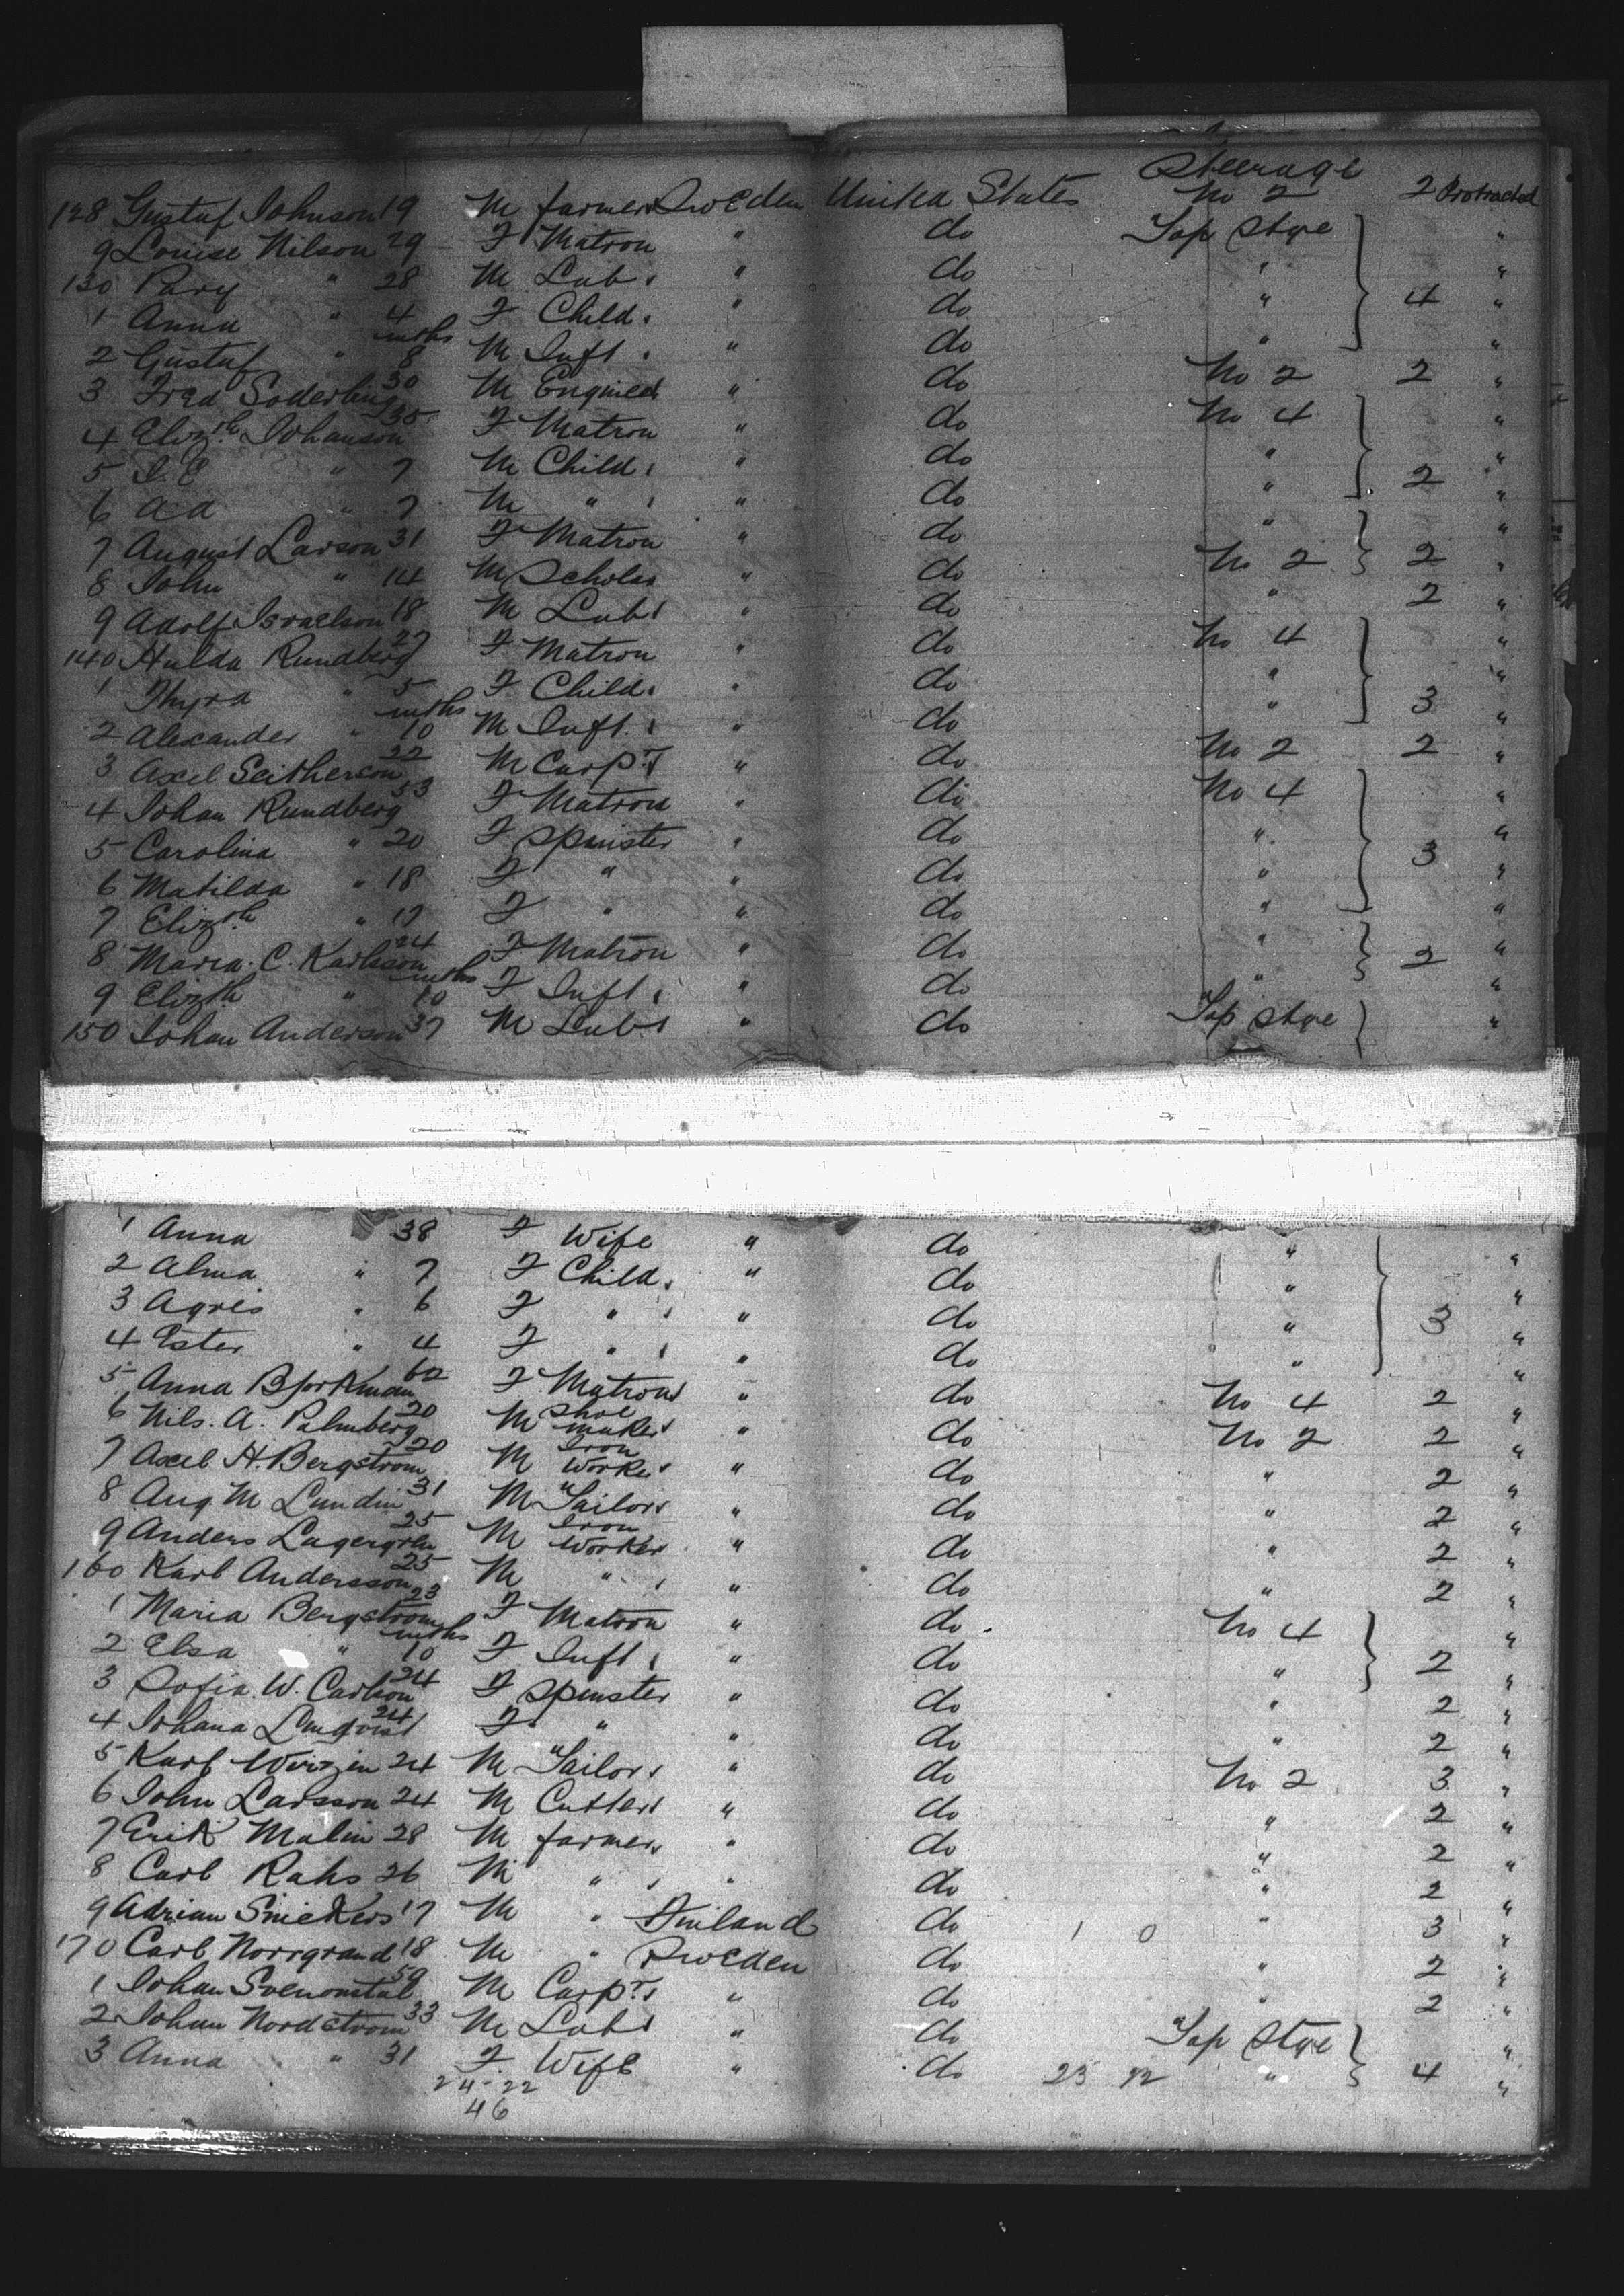 Steerage
128 Gustaf Johnson 19 M farmer Sweden United States No 2 2 Protracted
9 Louise Nilson 29 F Matron " do Top Stge "
130 " 28 M Lab. " do " "
1 Anna " 4 F Child. " do " 4 "
2 Gustaf " mths 8 M Inft. " do " "
3 Fred Soderling 30 M Engineer " do No 2 2 "
4 Elizth Johanson 35 F Matron " do No 4 "
5 J. E " 7 M Child. " do " "
6 " 7 M " " do " 2 "
7 August Larson 31 F Matron " do " "
8 John " 14 M Scholar " do No 2 2 "
9 Adolf Israelson 18 M Labr " do " 2 "
140 Hulda Rundberg 27 F Matron " do No 4 "
1 Thyra " 5 F Child. " do " "
2 Alexander " mths 10 M Inft. " do " 3 "
3 Axel 22 M Carptr " do No 2 2 "
4 Johan Rundberg 53 F Matron " do No 4 "
5 Carolina " 20 F Spinster " do " "
6 Matilda " 18 F " " do " 3 "
7 Elizth " 17 F " " do " "
8 Maria. C. Karlsson 24 F Matron " do " "
9 Elizth " mths 10 F Inft. " do " 2 "
150 Johan Anderson 37 M Labr " do Top Stge "
1 Anna " 38 F Wife " do " "
2 Alma " 7 F Child. " do " "
3 Agnes " 6 F " " do " 3 "
4 Ester " 4 F " " do " "
5 Anna Bjorkman 62 F Matron " do No 4 2 "
6 Nils. A. Palmberg 20 M Shoe maker " do No 2 2 "
7 Axel H. Bergstrom 20 M Iron Worker " do " 2 "
8 Aug. M Lundin 31 M Tailor " do " 2 "
9 Anders Lagergren 25 M Iron Worker " do " 2 "
160 Karl Andersson 25 M " " do " 2 "
1 Maria Bergstrom 23 F Matron " do No 4 "
2 Elsa " mths 10 F Inft. " do " 2 "
3 Sofia. W. Carlson 24 F Spinster " do " 2 "
4 Johana Lindqvist 24 F " " do " 2 "
5 Karl 24 M Tailor " do No 2 3 "
6 John Larsson 24 M Cutler " do " 2 "
7 Erik Malin 28 M farmer " do " 2 "
8 Carl Rahs 26 M " " do " 2 "
9 Adrian Snickers 17 M " Finland do 1 0 " 3 "
170 Carl Norrgrand 18 M " Sweden do " 2 "
1 Johan 59 M Carptr " do " 2 "
2 Johan Nordstrom 33 M Labr " do Top Stge "
3 Anna " 31 F Wife " do 23 " 4 "
24-22
46